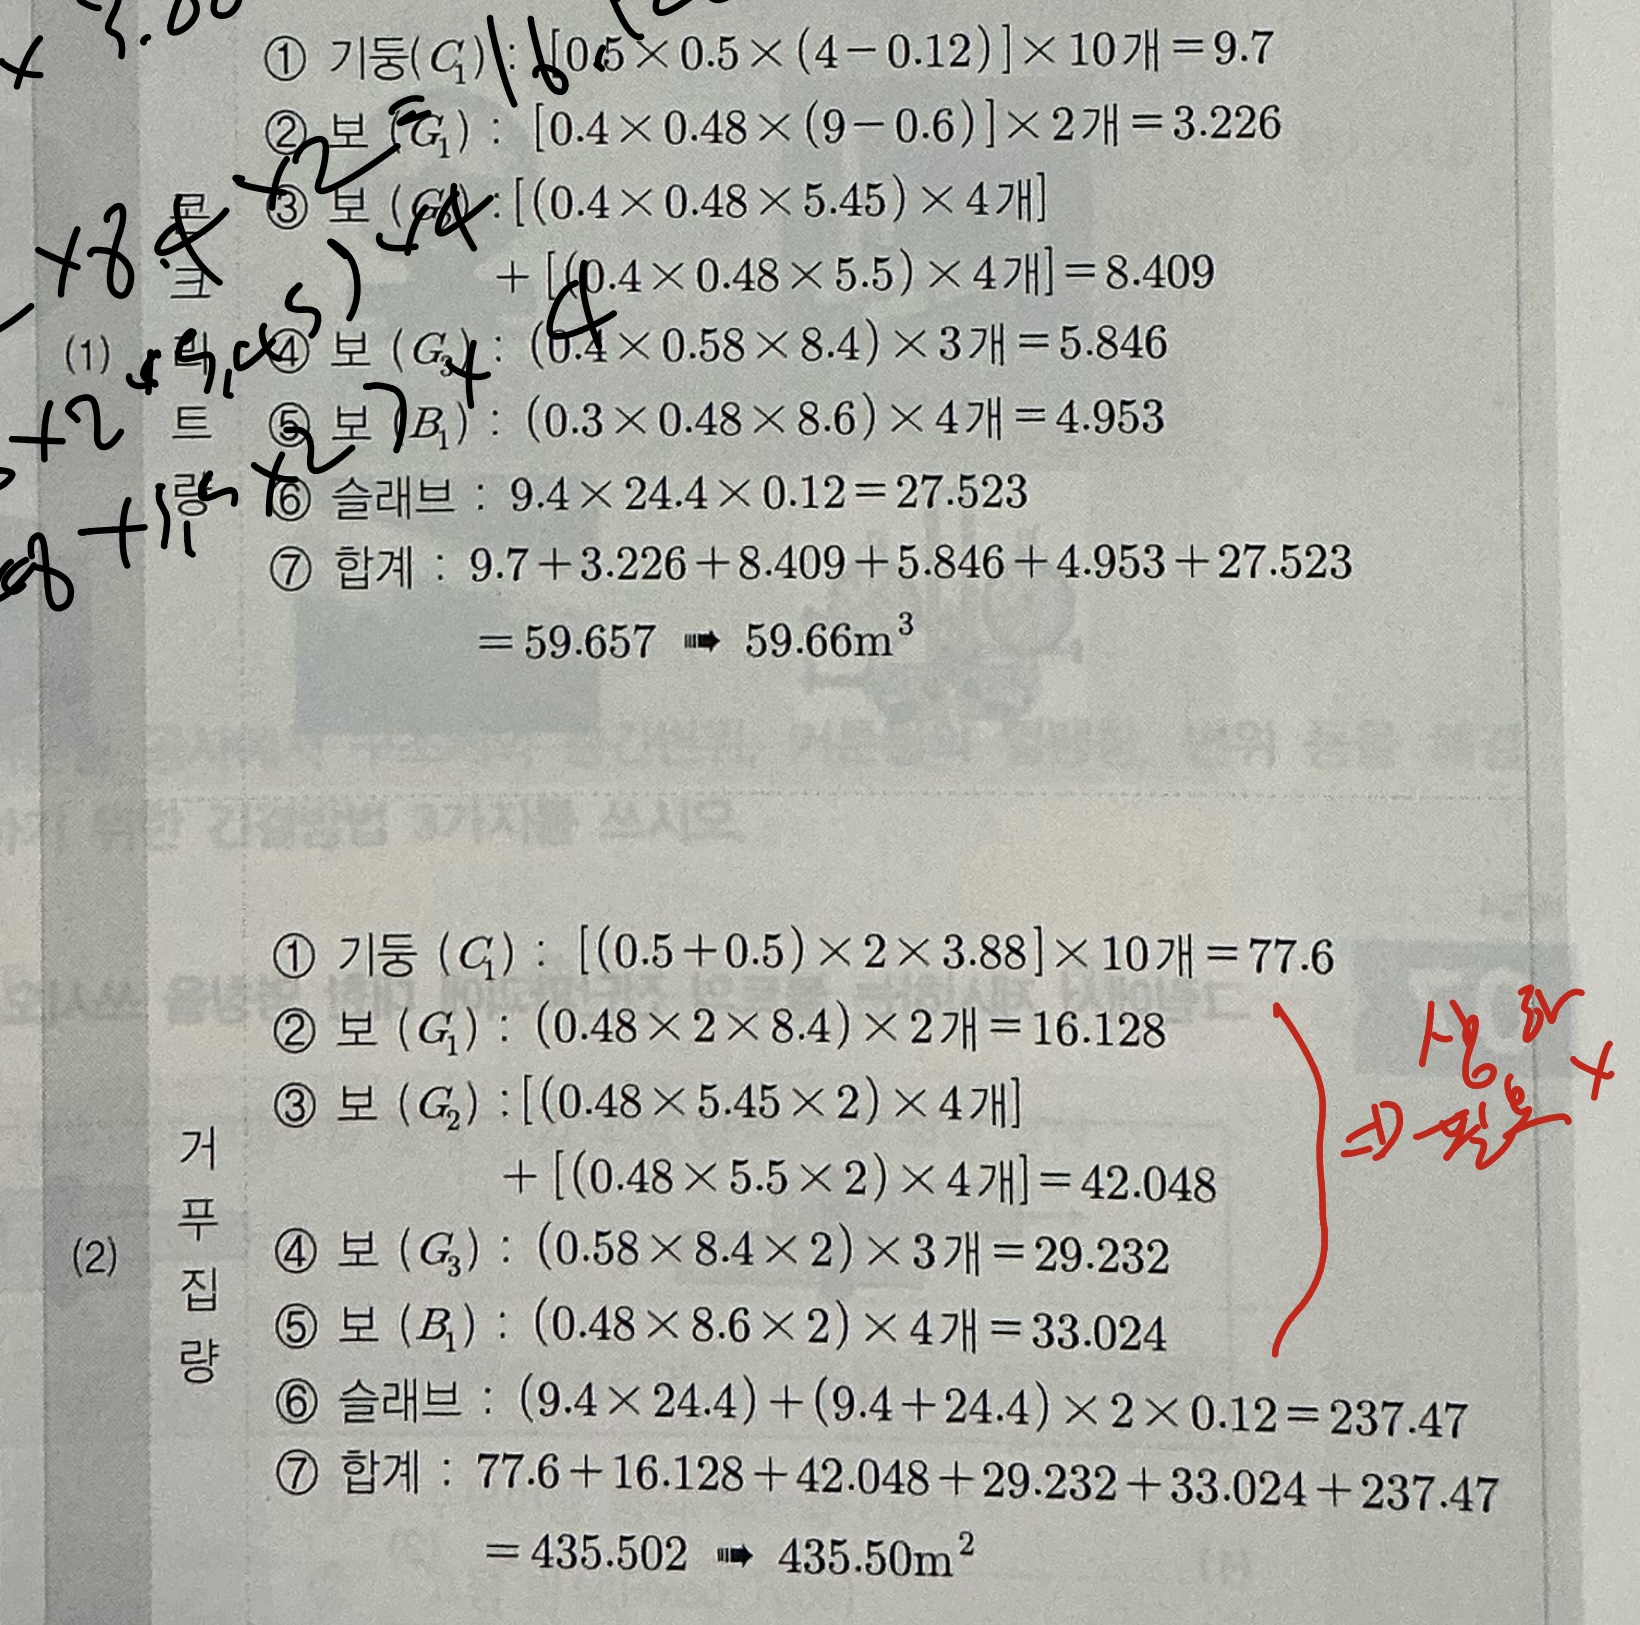 ① 기둥(C₁) : [0.5×0.5×(4−0.12)]×10개=9.7
② 보 (G₁) : [0.4×0.48×(9−0.6)]×2개=3.226
③ 보 (G₂) : [(0.4×0.48×5.45)×4개]
+[(0.4×0.48×5.5)×4개]=8.409
④ 보 (G₃) : (0.4×0.58×8.4)×3개=5.846
⑤ 보 (B₁) : (0.3×0.48×8.6)×4개=4.953
⑥ 슬래브 : 9.4×24.4×0.12=27.523
⑦ 합계 : 9.7+3.226+8.409+5.846+4.953+27.523
=59.657 ➠ 59.66m³
(1)
콘크리트량
① 기둥 (C₁) : [(0.5+0.5)×2×3.88]×10개=77.6
② 보 (G₁) : (0.48×2×8.4)×2개=16.128
③ 보 (G₂) : [(0.48×5.45×2)×4개]
+[(0.48×5.5×2)×4개]=42.048
④ 보 (G₃) : (0.58×8.4×2)×3개=29.232
⑤ 보 (B₁) : (0.48×8.6×2)×4개=33.024
⑥ 슬래브 : (9.4×24.4)+(9.4+24.4)×2×0.12=237.47
⑦ 합계 : 77.6+16.128+42.048+29.232+33.024+237.47
=435.502 ➠ 435.50m²
(2)
거푸집량
×8.4×2